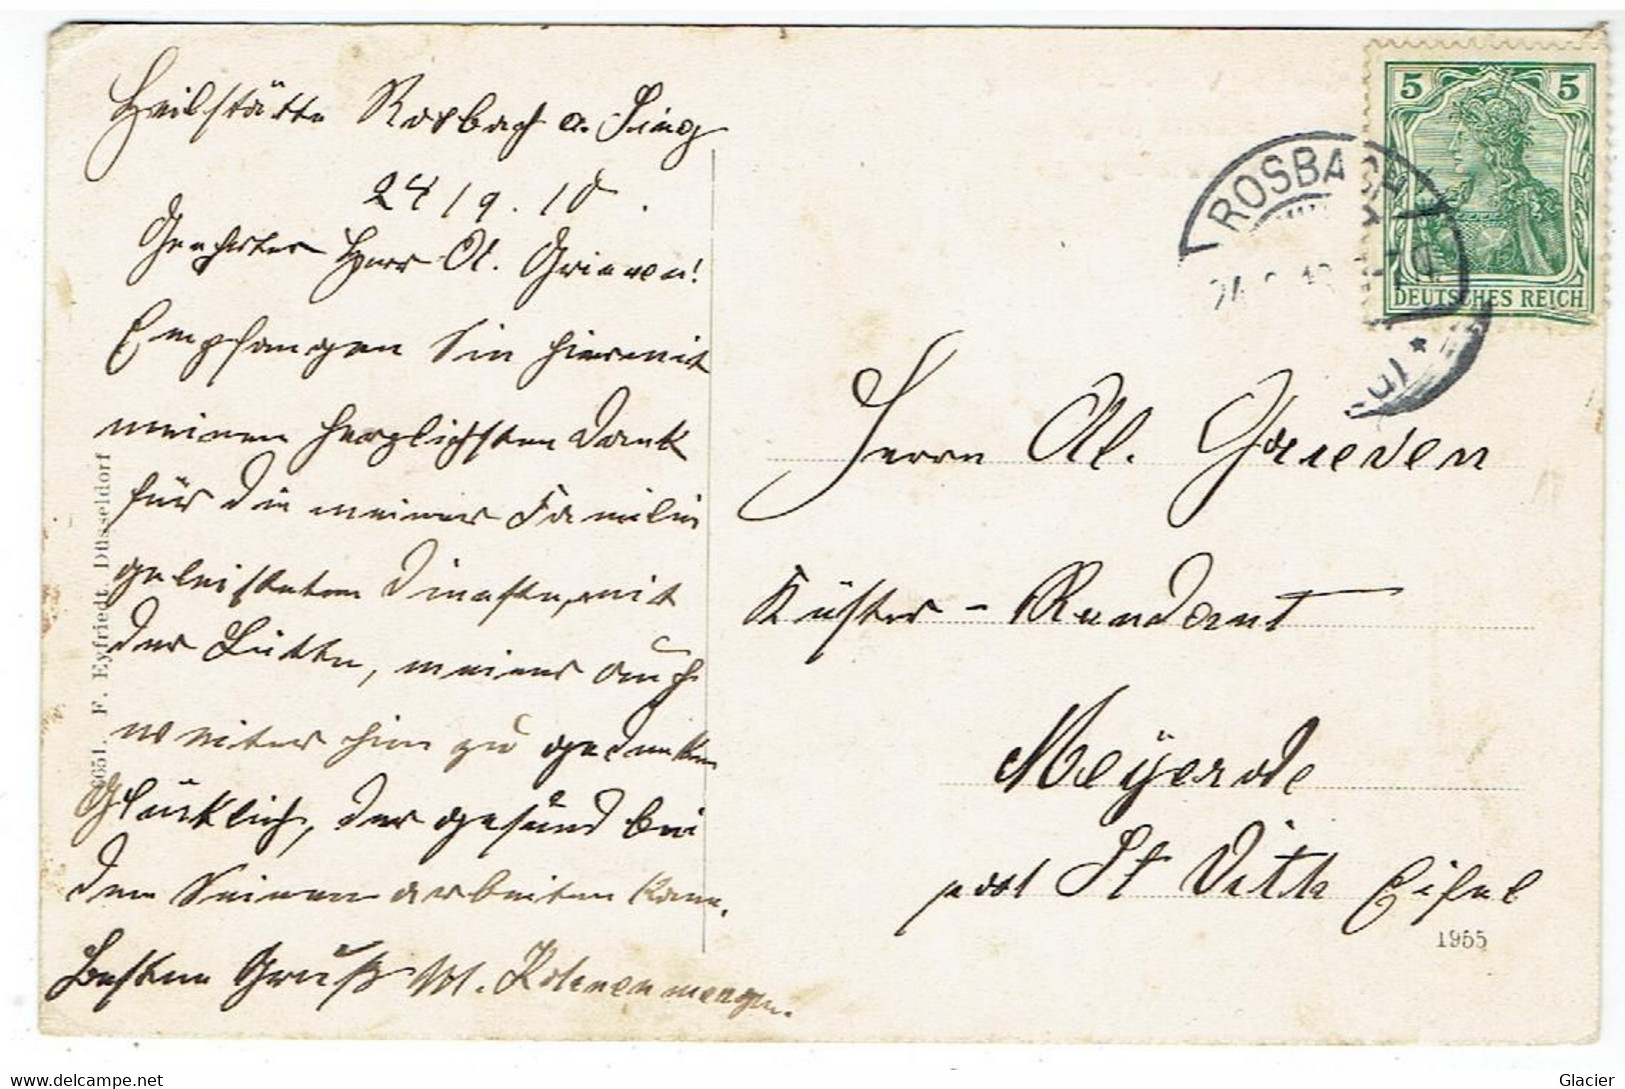 Heilstätte Rosbach a. Sieg
24/9.10.
Geehrter Herr Al. Grieven!
Empfangen Sie hiermit
meinen herzlichsten Dank
für die meiner Familie
geleisteten Dienste, mit
der Bitte, meiner auch
weiter hin zu gedenken
Glücklich, der gesund bei
den Seinen arbeiten kann.
Besten Gruß
6651. F. Eyfriedt, Düsseldorf
5 5
DEUTSCHES REICH
ROSBACH
Herrn Al. Grieven
Küster-Rendant
Meyerode
post St Vith Eifel
1955
Glacier
delcampe.net